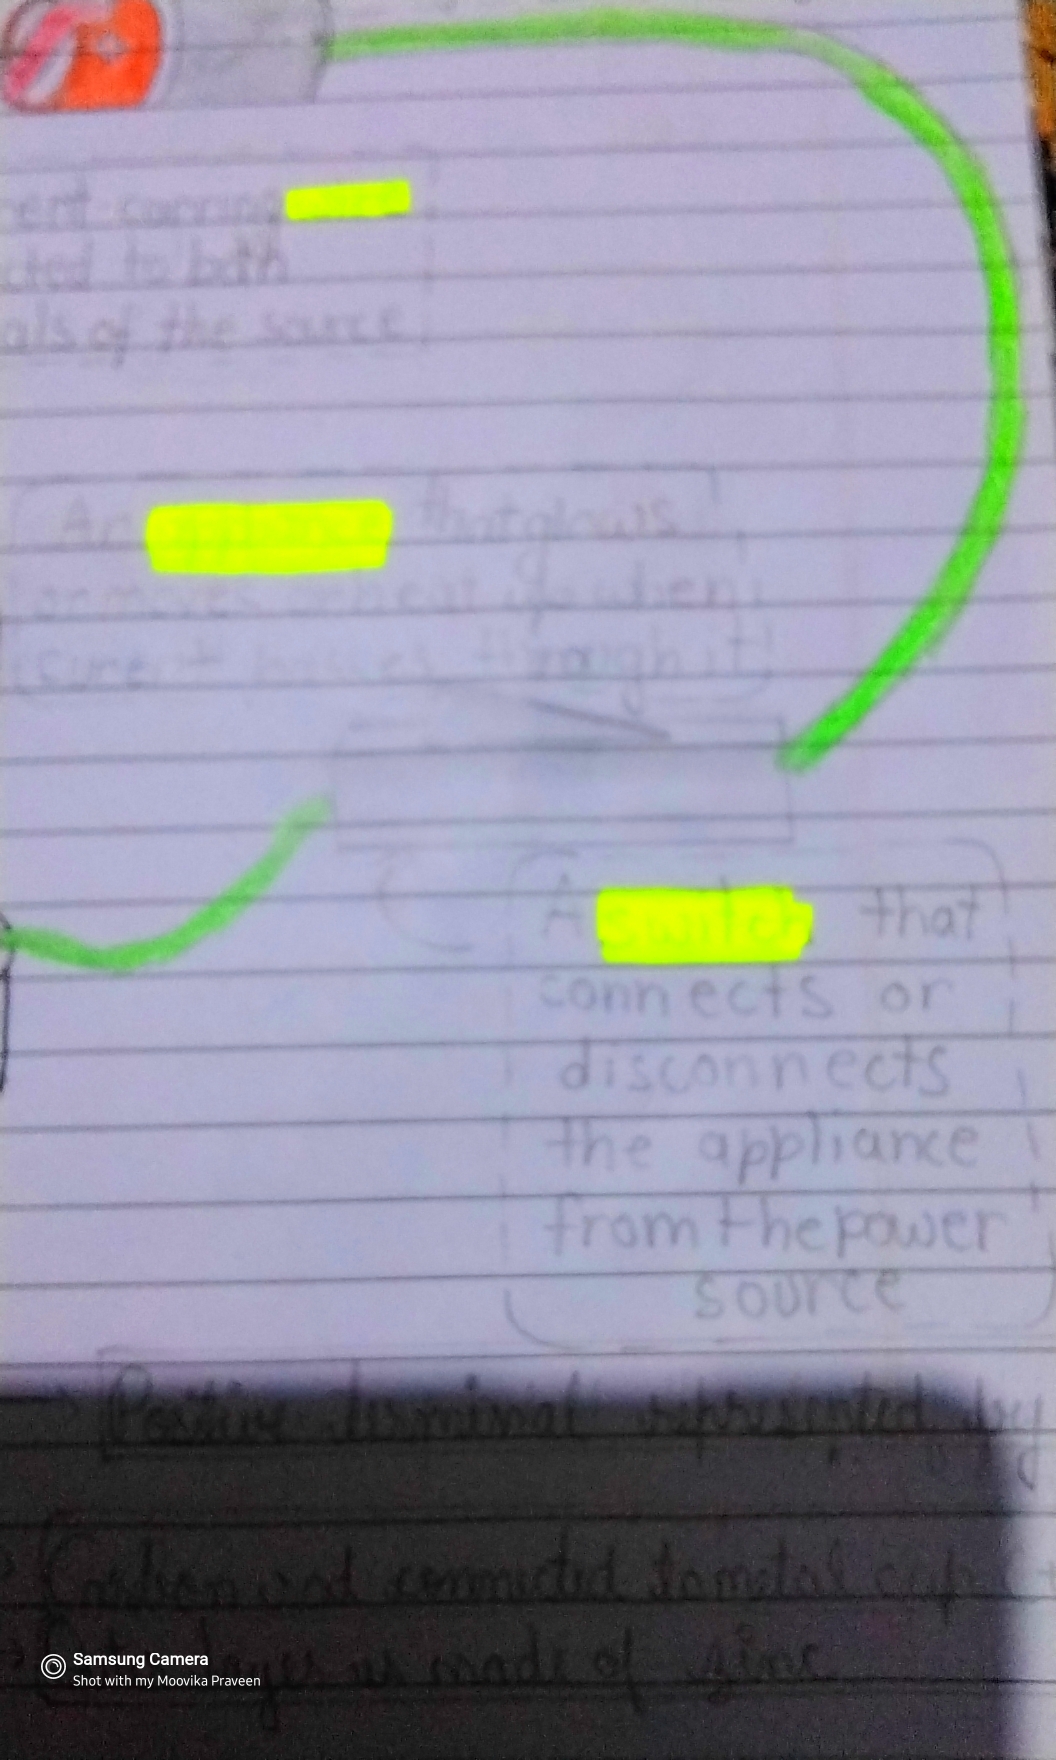 carring
cted to both
als of the source
An appliance that glows
or moves or heat up when
current passes through it
A switch that
connects or
disconnects
the appliance
from the power
source
Positive terminal represented by
Carbon rod connected to metal cap (+
is made of zinc
Samsung Camera
Shot with my Moovika Praveen